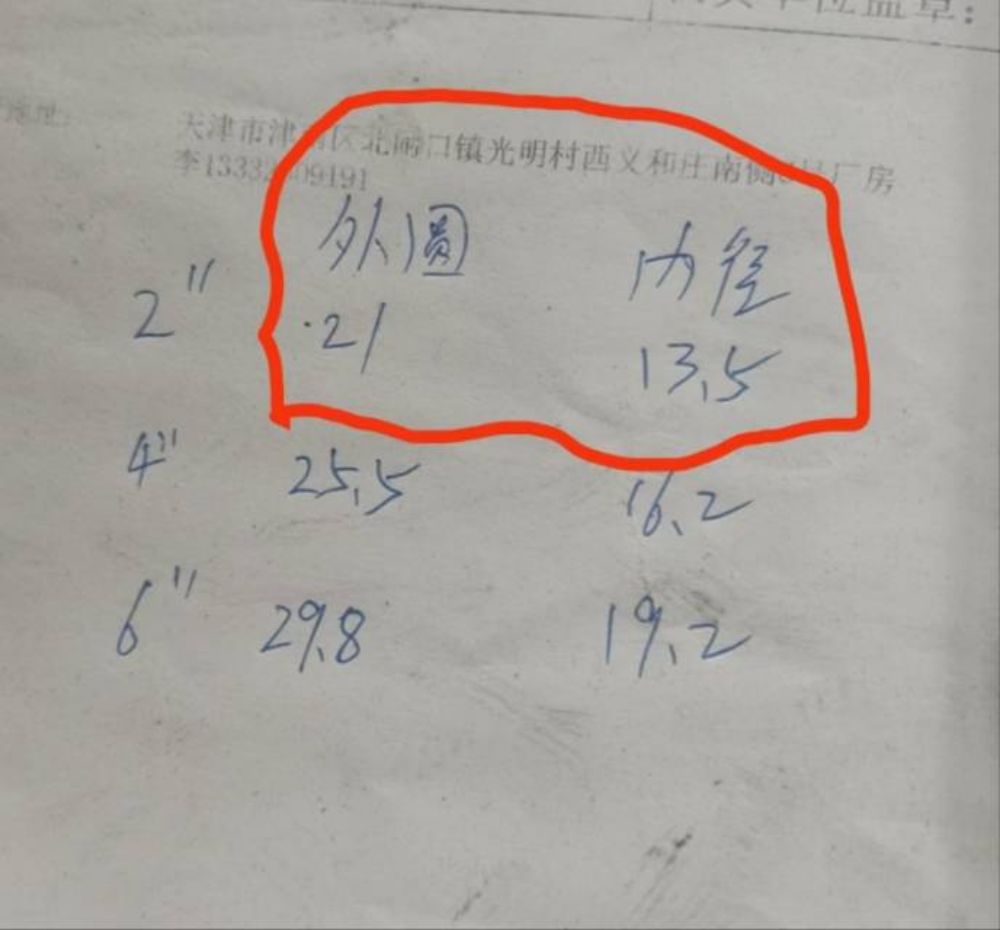 单位盖章:
天津市津南区北闸口镇光明村西义和庄南侧 厂房
李1333 09191
外圆 内径
2" 21 13.5
4" 25.5 16.2
6" 29.8 19.2